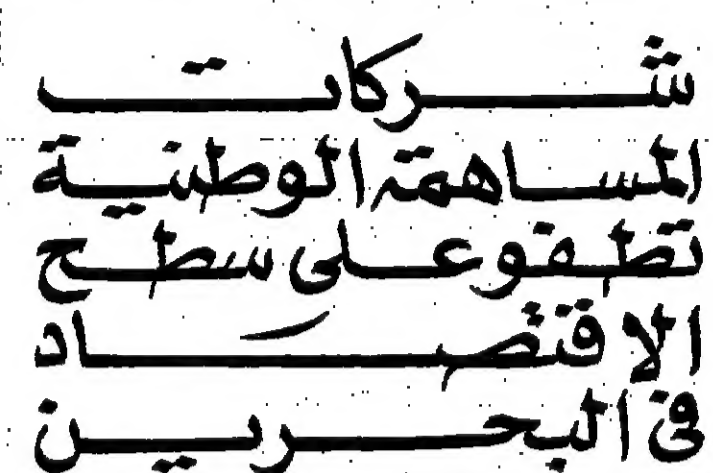 شركات
المساهمة الوطنية
تطفو على سطح
الاقتصاد
في البحرين